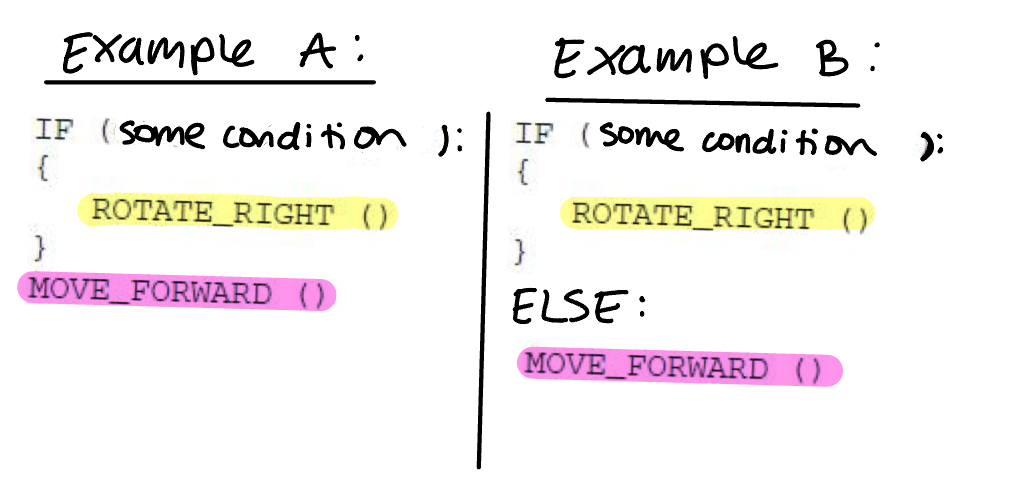 Example A:
IF (some condition ):
{
ROTATE_RIGHT ()
}
MOVE_FORWARD ()
Example B:
IF (some condition ):
{
ROTATE_RIGHT ()
}
ELSE:
MOVE_FORWARD ()